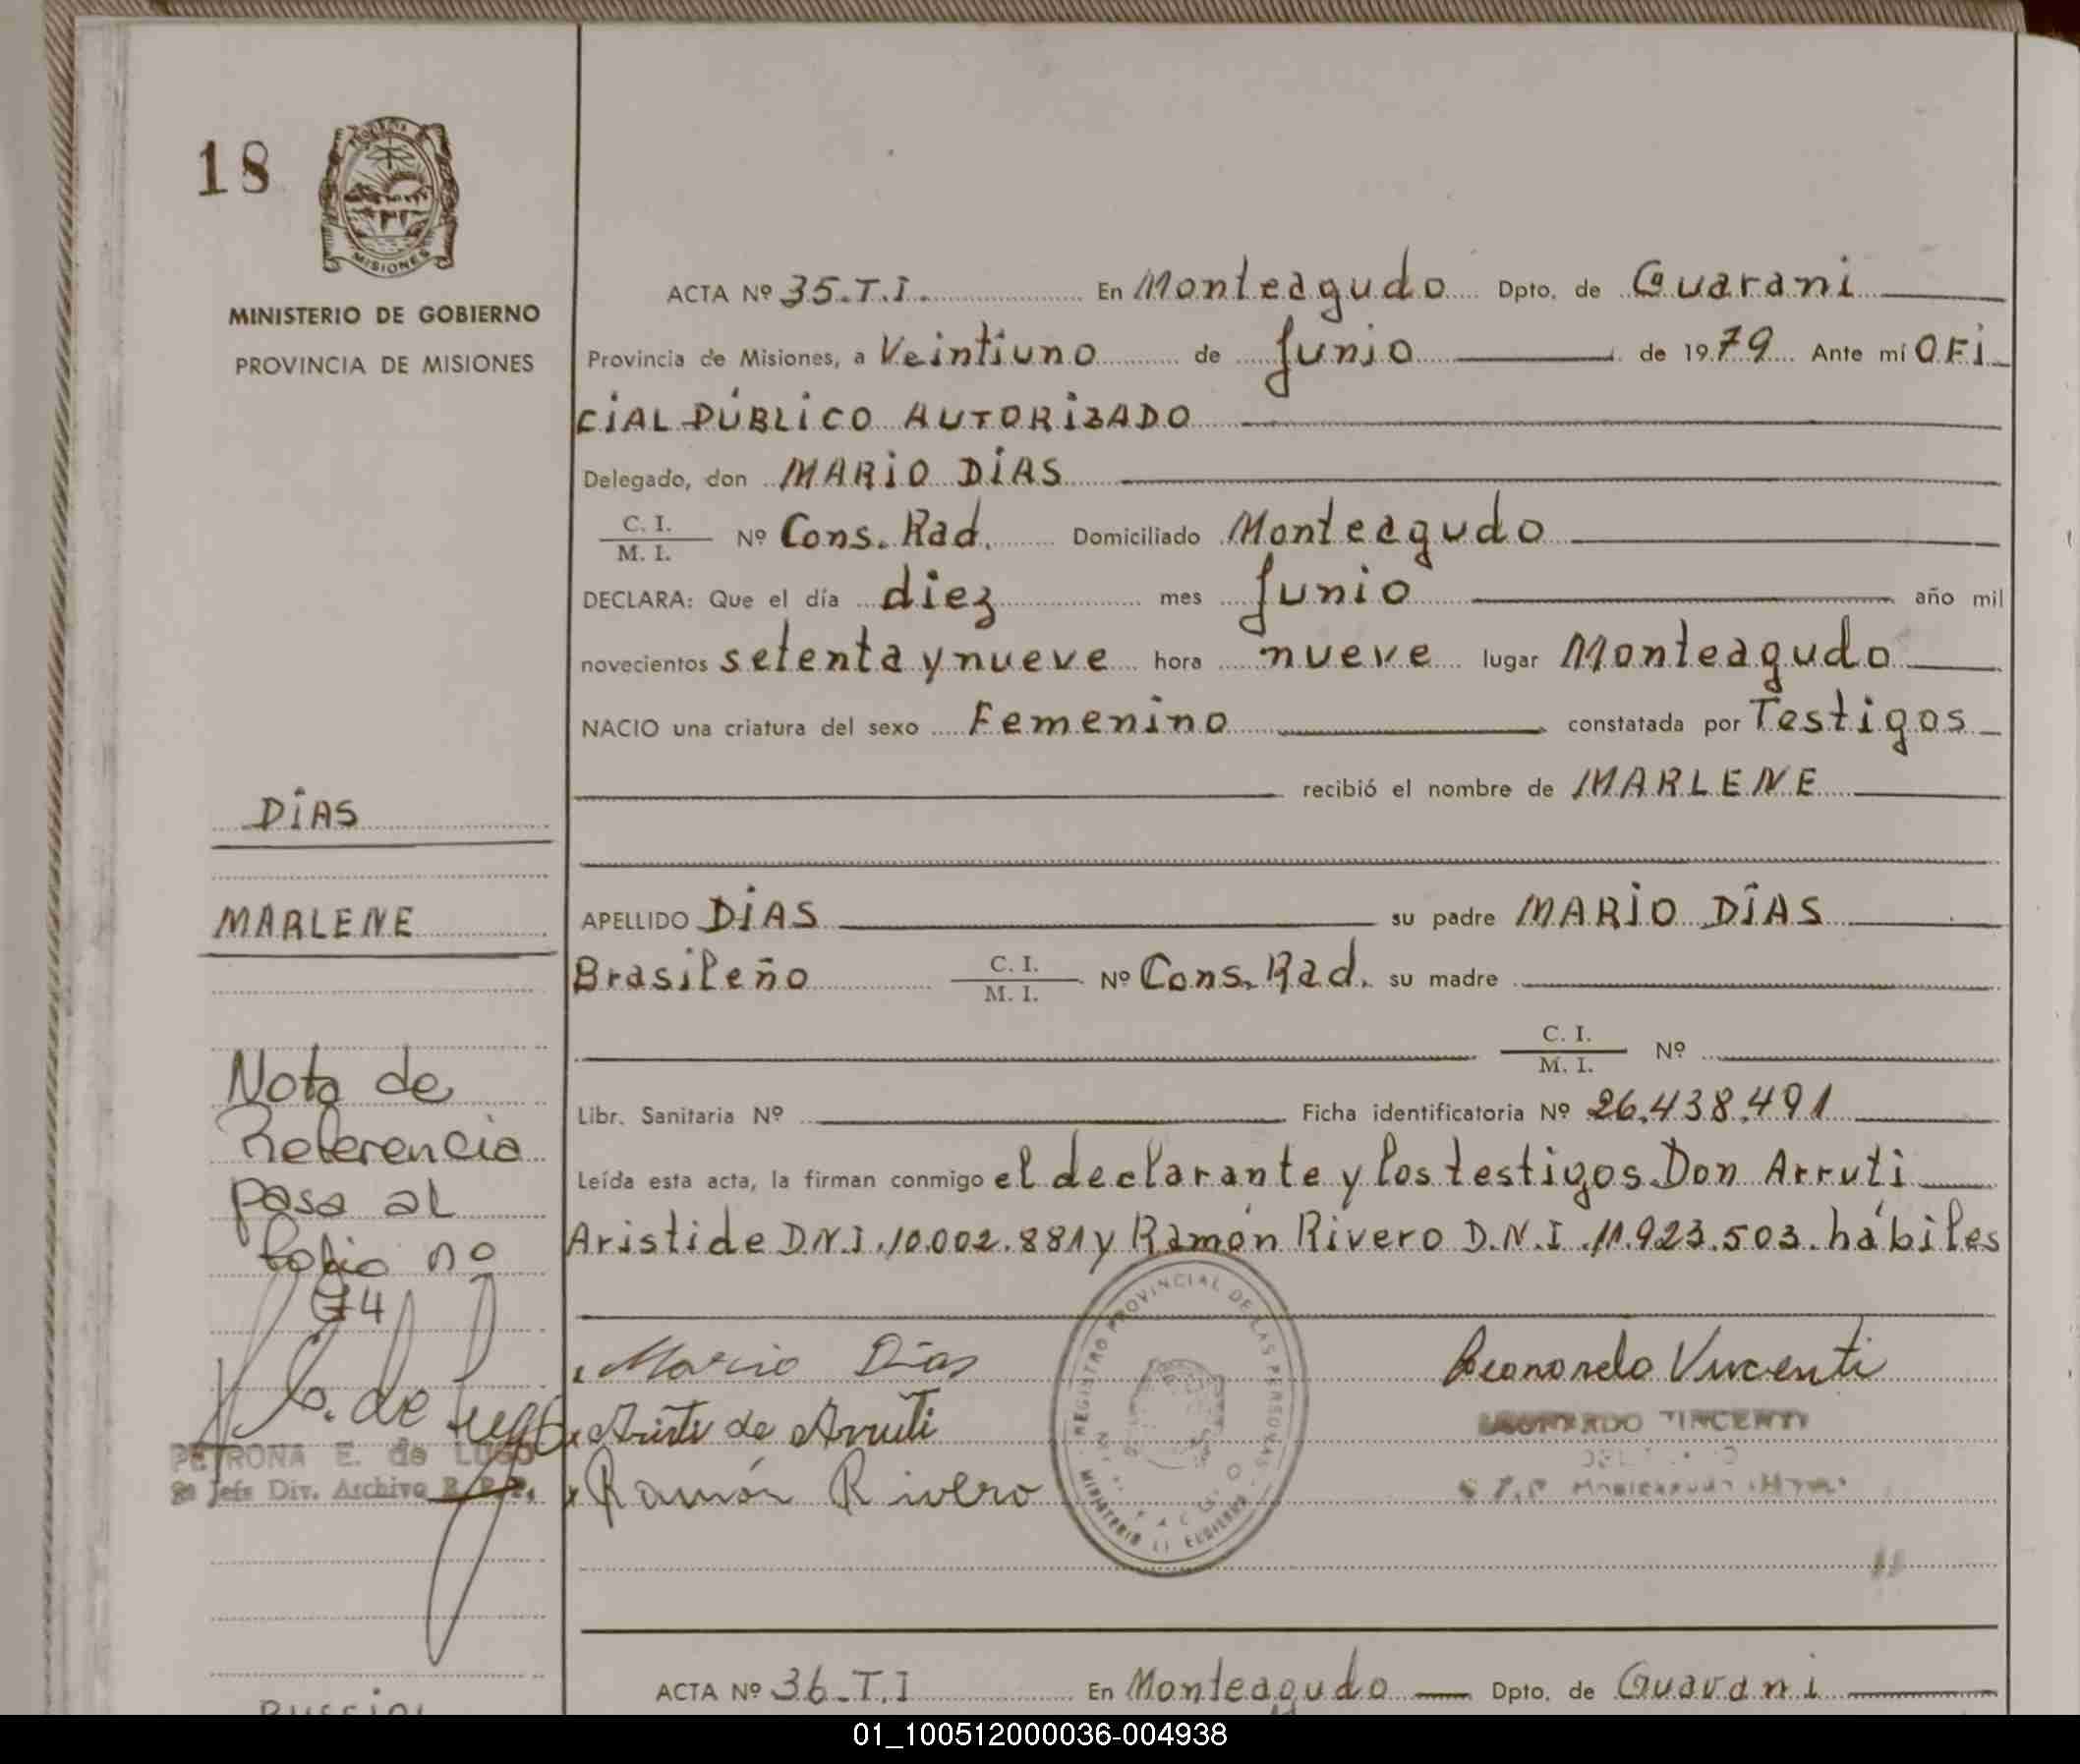 18
MISIONES
MINISTERIO DE GOBIERNO
PROVINCIA DE MISIONES
ACTA Nº 35.T.I. En Monteagudo Dpto. de Guarani
Provincia de Misiones, a Veintiuno de Junio de 1979. Ante mí OFI
CIAL PÚBLICO AUTORIZADO
Delegado, don MARIO DIAS
C. I.
M. I.
Nº Cons. Rad. Domiciliado Monteagudo
DECLARA: Que el día diez mes Junio año mil
novecientos setenta y nueve hora nueve lugar Monteagudo
NACIO una criatura del sexo Femenino constatada por Testigos
recibió el nombre de MARLENE
DIAS
MARLENE
APELLIDO DIAS su padre MARIO DIAS
Brasileño C. I.
M. I.
Nº Cons. Rad. su madre
C. I.
M. I.
Nº
Libr. Sanitaria Nº Ficha identificatoria Nº 26.438.491
Leída esta acta, la firman conmigo el declarante y los testigos Don Arruti
Aristide D.N.I. 10.002.881 y Ramón Rivero D.N.I. 11.923.503. hábiles
Nota de
Referencia
pasa al
folio nº
74
Mario Dias
Aristide Arruti
Ramón Rivero
Leonardo Vincenti
LEONARDO VINCENTI
REGISTRO PROVINCIAL DE LAS PERSONAS
MINISTERIO DE GOBIERNO
PETRONA E. de LUGO
Jefe Div. Archivo R. P. P.
ACTA Nº 36-T.I En Monteagudo Dpto. de Guarani
01_100512000036-004938